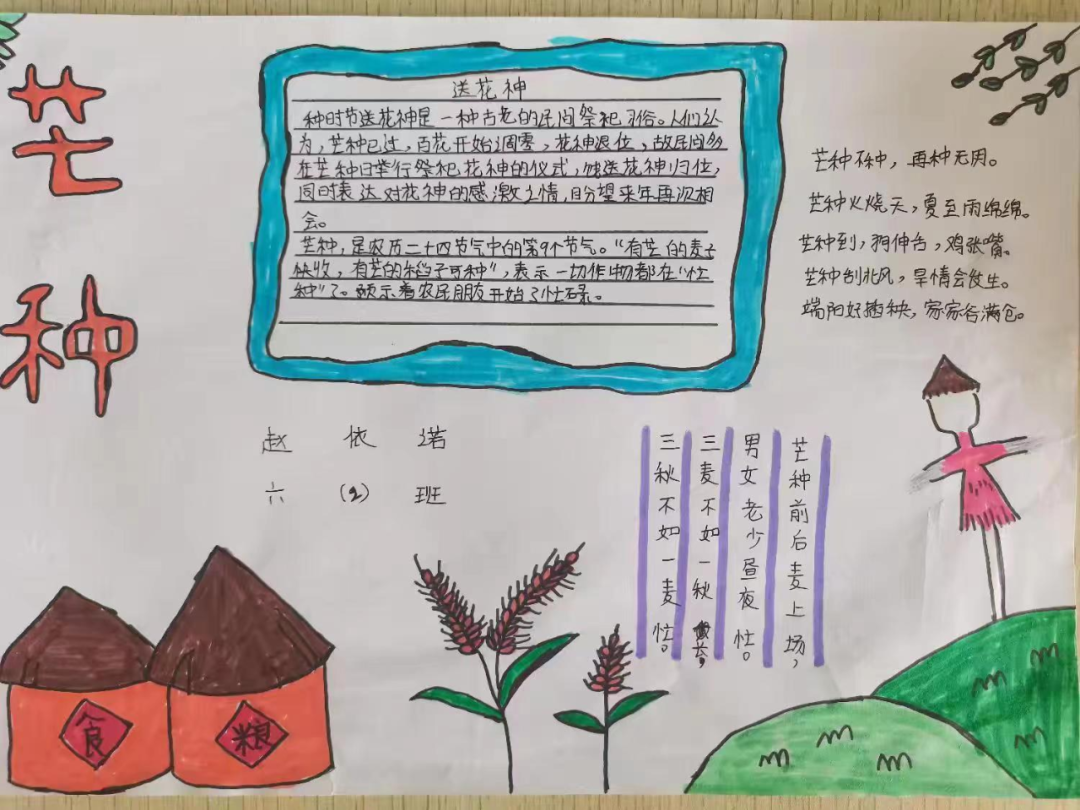 芒
种
送花神
种时节送花神是一种古老的民间祭祀习俗。人们认
为，芒种已过，百花开始凋零，花神退位，故民间多
在芒种日举行祭祀花神的仪式，饯送花神归位，
同时表达对花神的感激之情，盼望来年再次相
会。
芒种，是农历二十四节气中的第9个节气。“有芒的麦子
快收，有芒的稻子可种”，表示一切作物都在“忙
种”了。预示着农民朋友开始了忙碌。
芒种不种，再种无用。
芒种火烧天，夏至雨绵绵。
芒种到，狗伸舌，鸡张嘴。
芒种刮北风，旱情会发生。
端阳好插秧，家家谷满仓。
赵依诺
六（2）班
芒种前后麦上场，
男女老少昼夜忙。
三麦不如一秋长，
三秋不如一麦忙。
食
粮